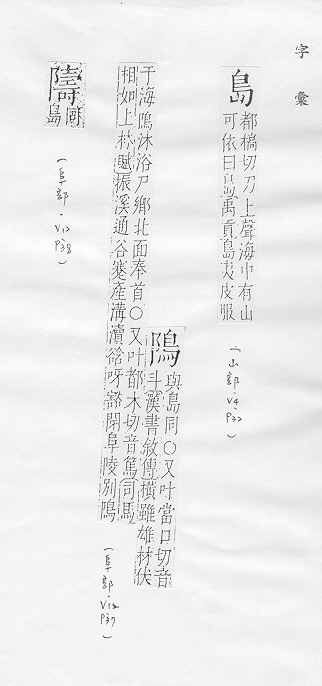 字彙
島
都橋切刀上聲海中有山
可依曰島禹貢島夷皮服
(山部·V4·P32)
隝
與島同○又叶當口切音
斗漢書敘傳橫雖雄材伏
于海隝沐浴尸鄉北面奉首○又叶都木切音篤司馬
相如上林賦振溪通谷蹇產溝瀆谽呀豁閉阜陵別隝
(阜部·V12 P37)
隯
同島
(阜部·V12 P38)